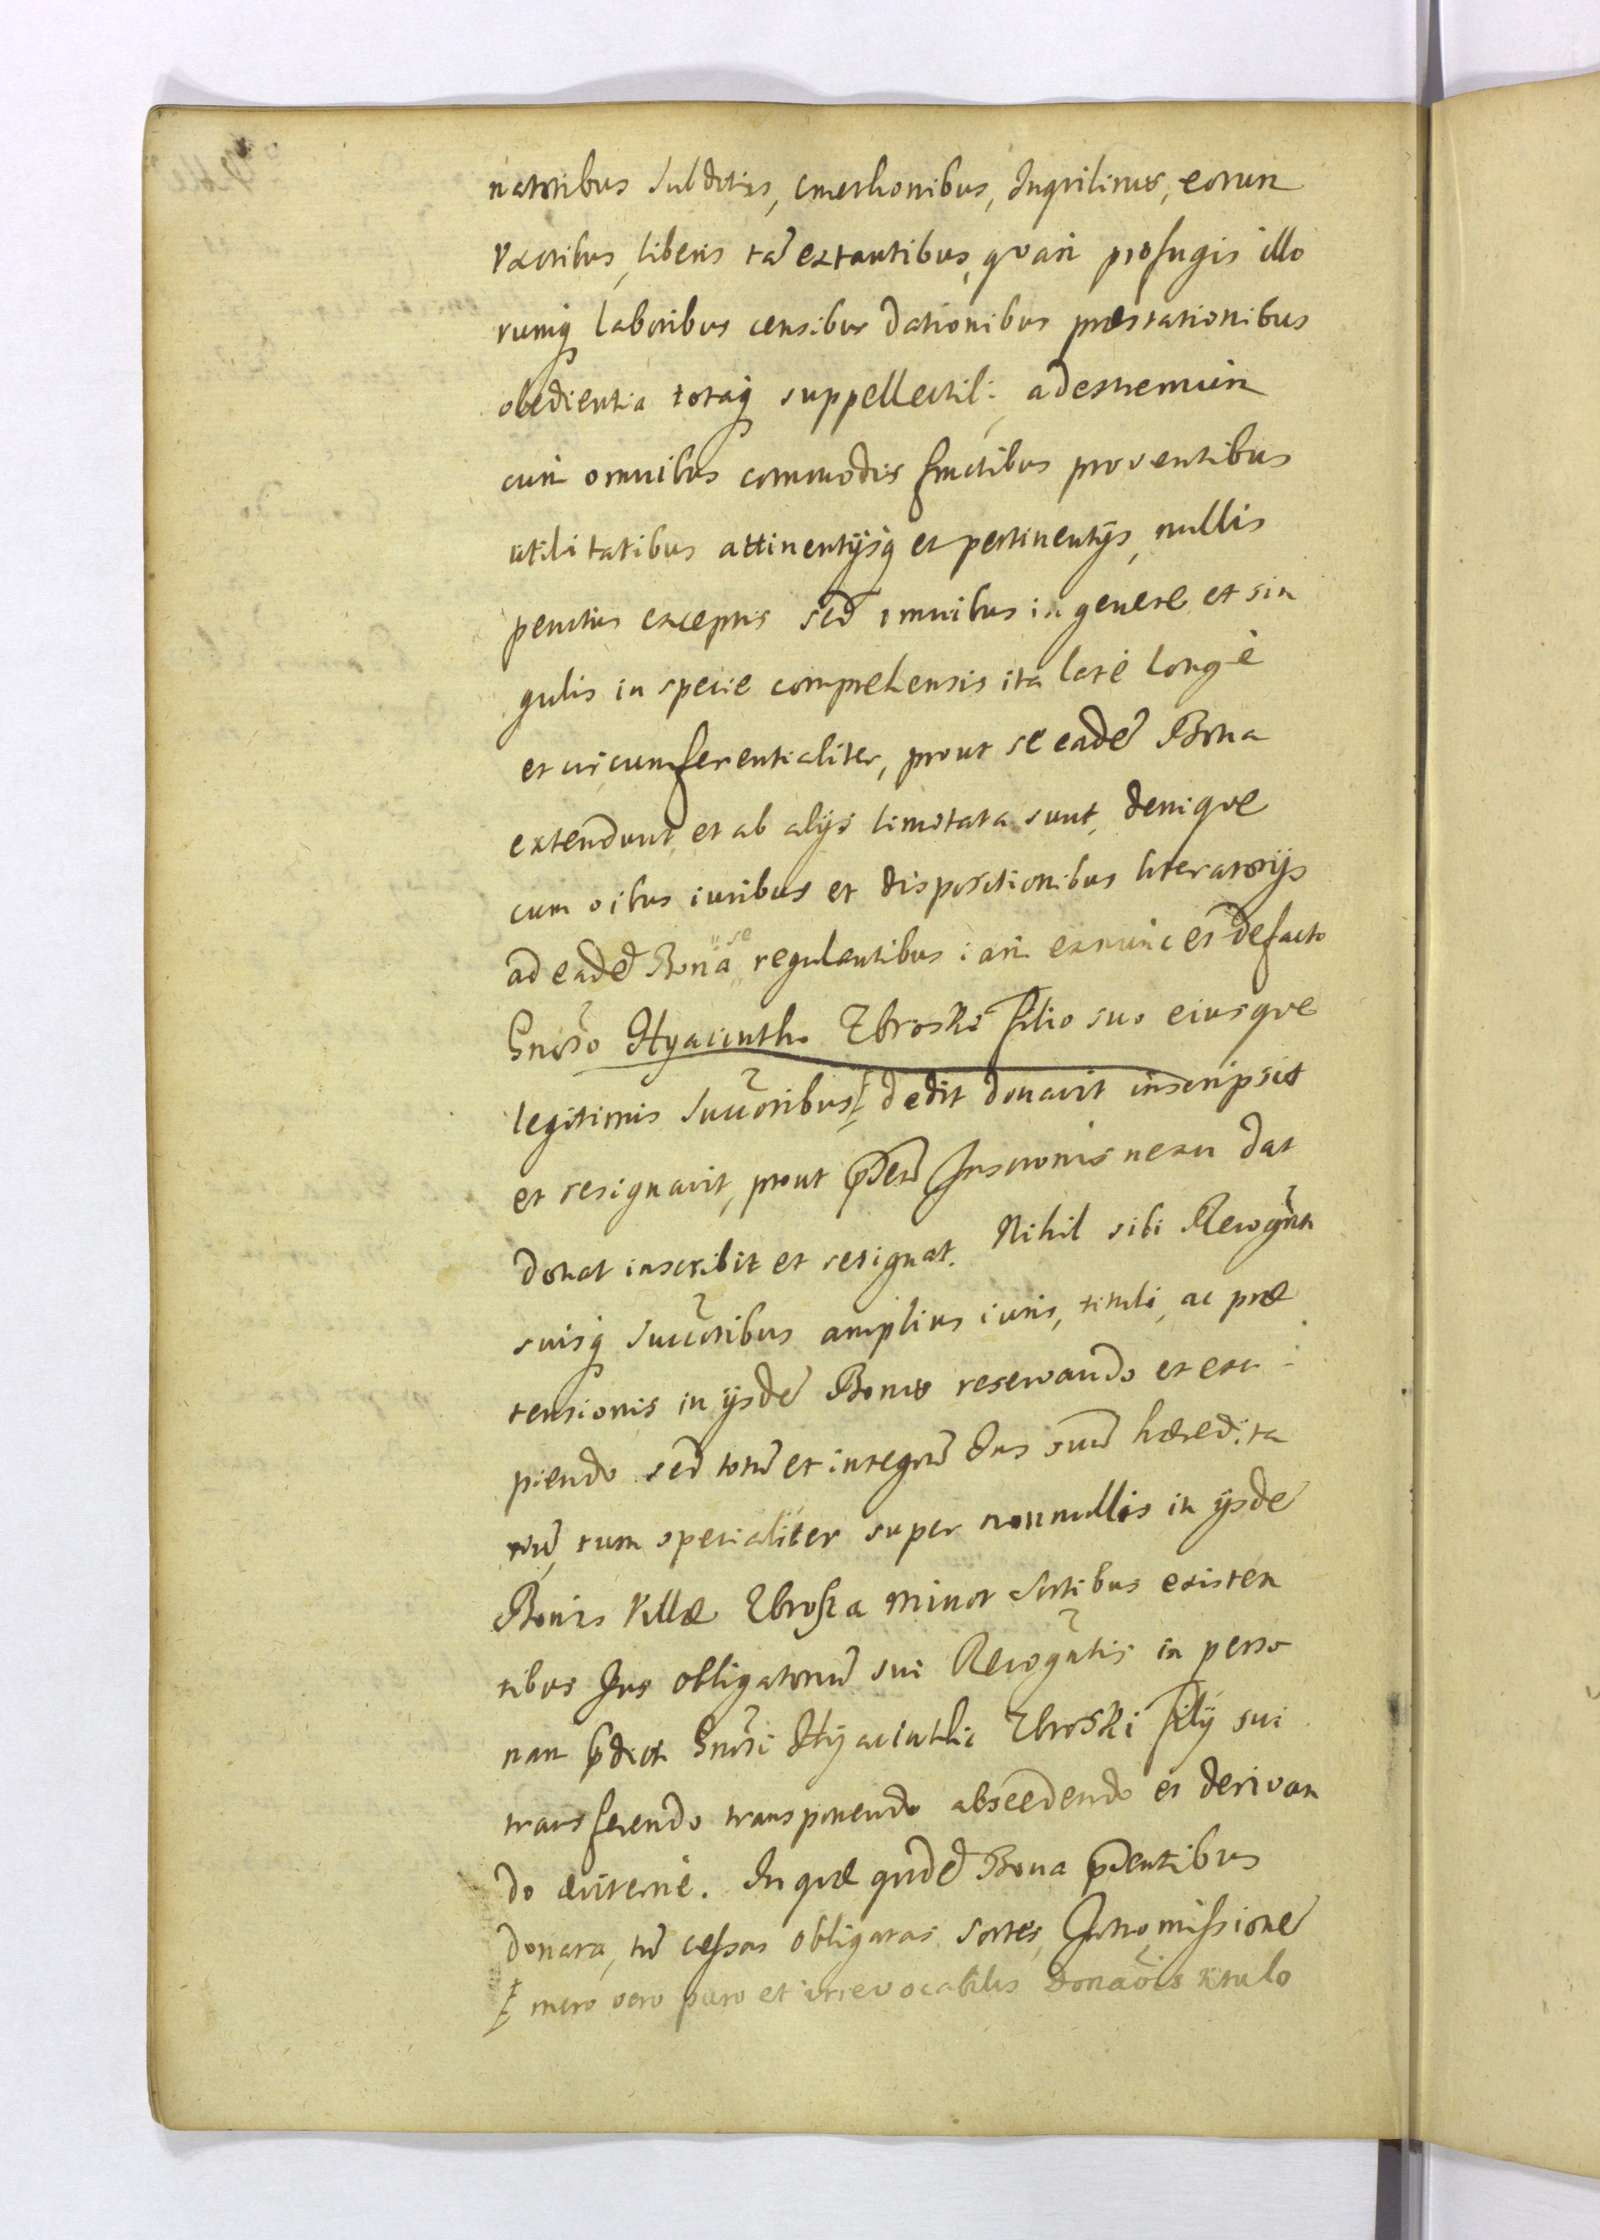 natoribus Subditis, cmethonibus, Inquilinis, eorun
Vxoribus, liberis tã extantibus, quam profugis illo
rumq laboribus censibus dationibus præstationibus
obedientia totaq suppellectili, ad extremum
cum omnibus commodis fructibus proventibus
utilitatibus attinentijsq et pertinentijs, nullis
penitus exceptis sed omnibus in genere et sin
gulis in specie comprehensis ita latè longè
et circumferentialiter, prout se eadẽ Bona
extendunt et ab alijs limitata sunt, denique
cum oibus iuribus et dispositionibus literatorijs
ad eadẽ Bona se regulantibus iam exnunc et defacto
Gnoso Hyacintho Zbroski filio suo eiusque
legitimis Succoribus dedit donavit inscripsit
et resignavit, prout pñtũ Inscronis nexu dat
donat inscribit et resignat. Nihil sibi Recognñ
suisq Succoribus amplius iuris, tituli, ac præ
tensionis in ijsdẽ Bonis reservando et exci
piendo sed totũ et integrũ Ius suũ hæredita
riũ, tum specialiter super nonnullis in ijsdẽ
Bonis Villæ Zbroska minor Sortibus existen
tibus Ius obligatoriũ sui Recogntis in perso
nam pdicti Gnosi Hyacinthi Zbroski filij sui
transferendo transponendo abscedendo et derivan
do æviternè. In quæ quidẽ Bona pdentibus
donata, tũ cessas obligatas Sortes, Intromissionẽ
mero vero puro et irrevocabilis Donaõis titulo